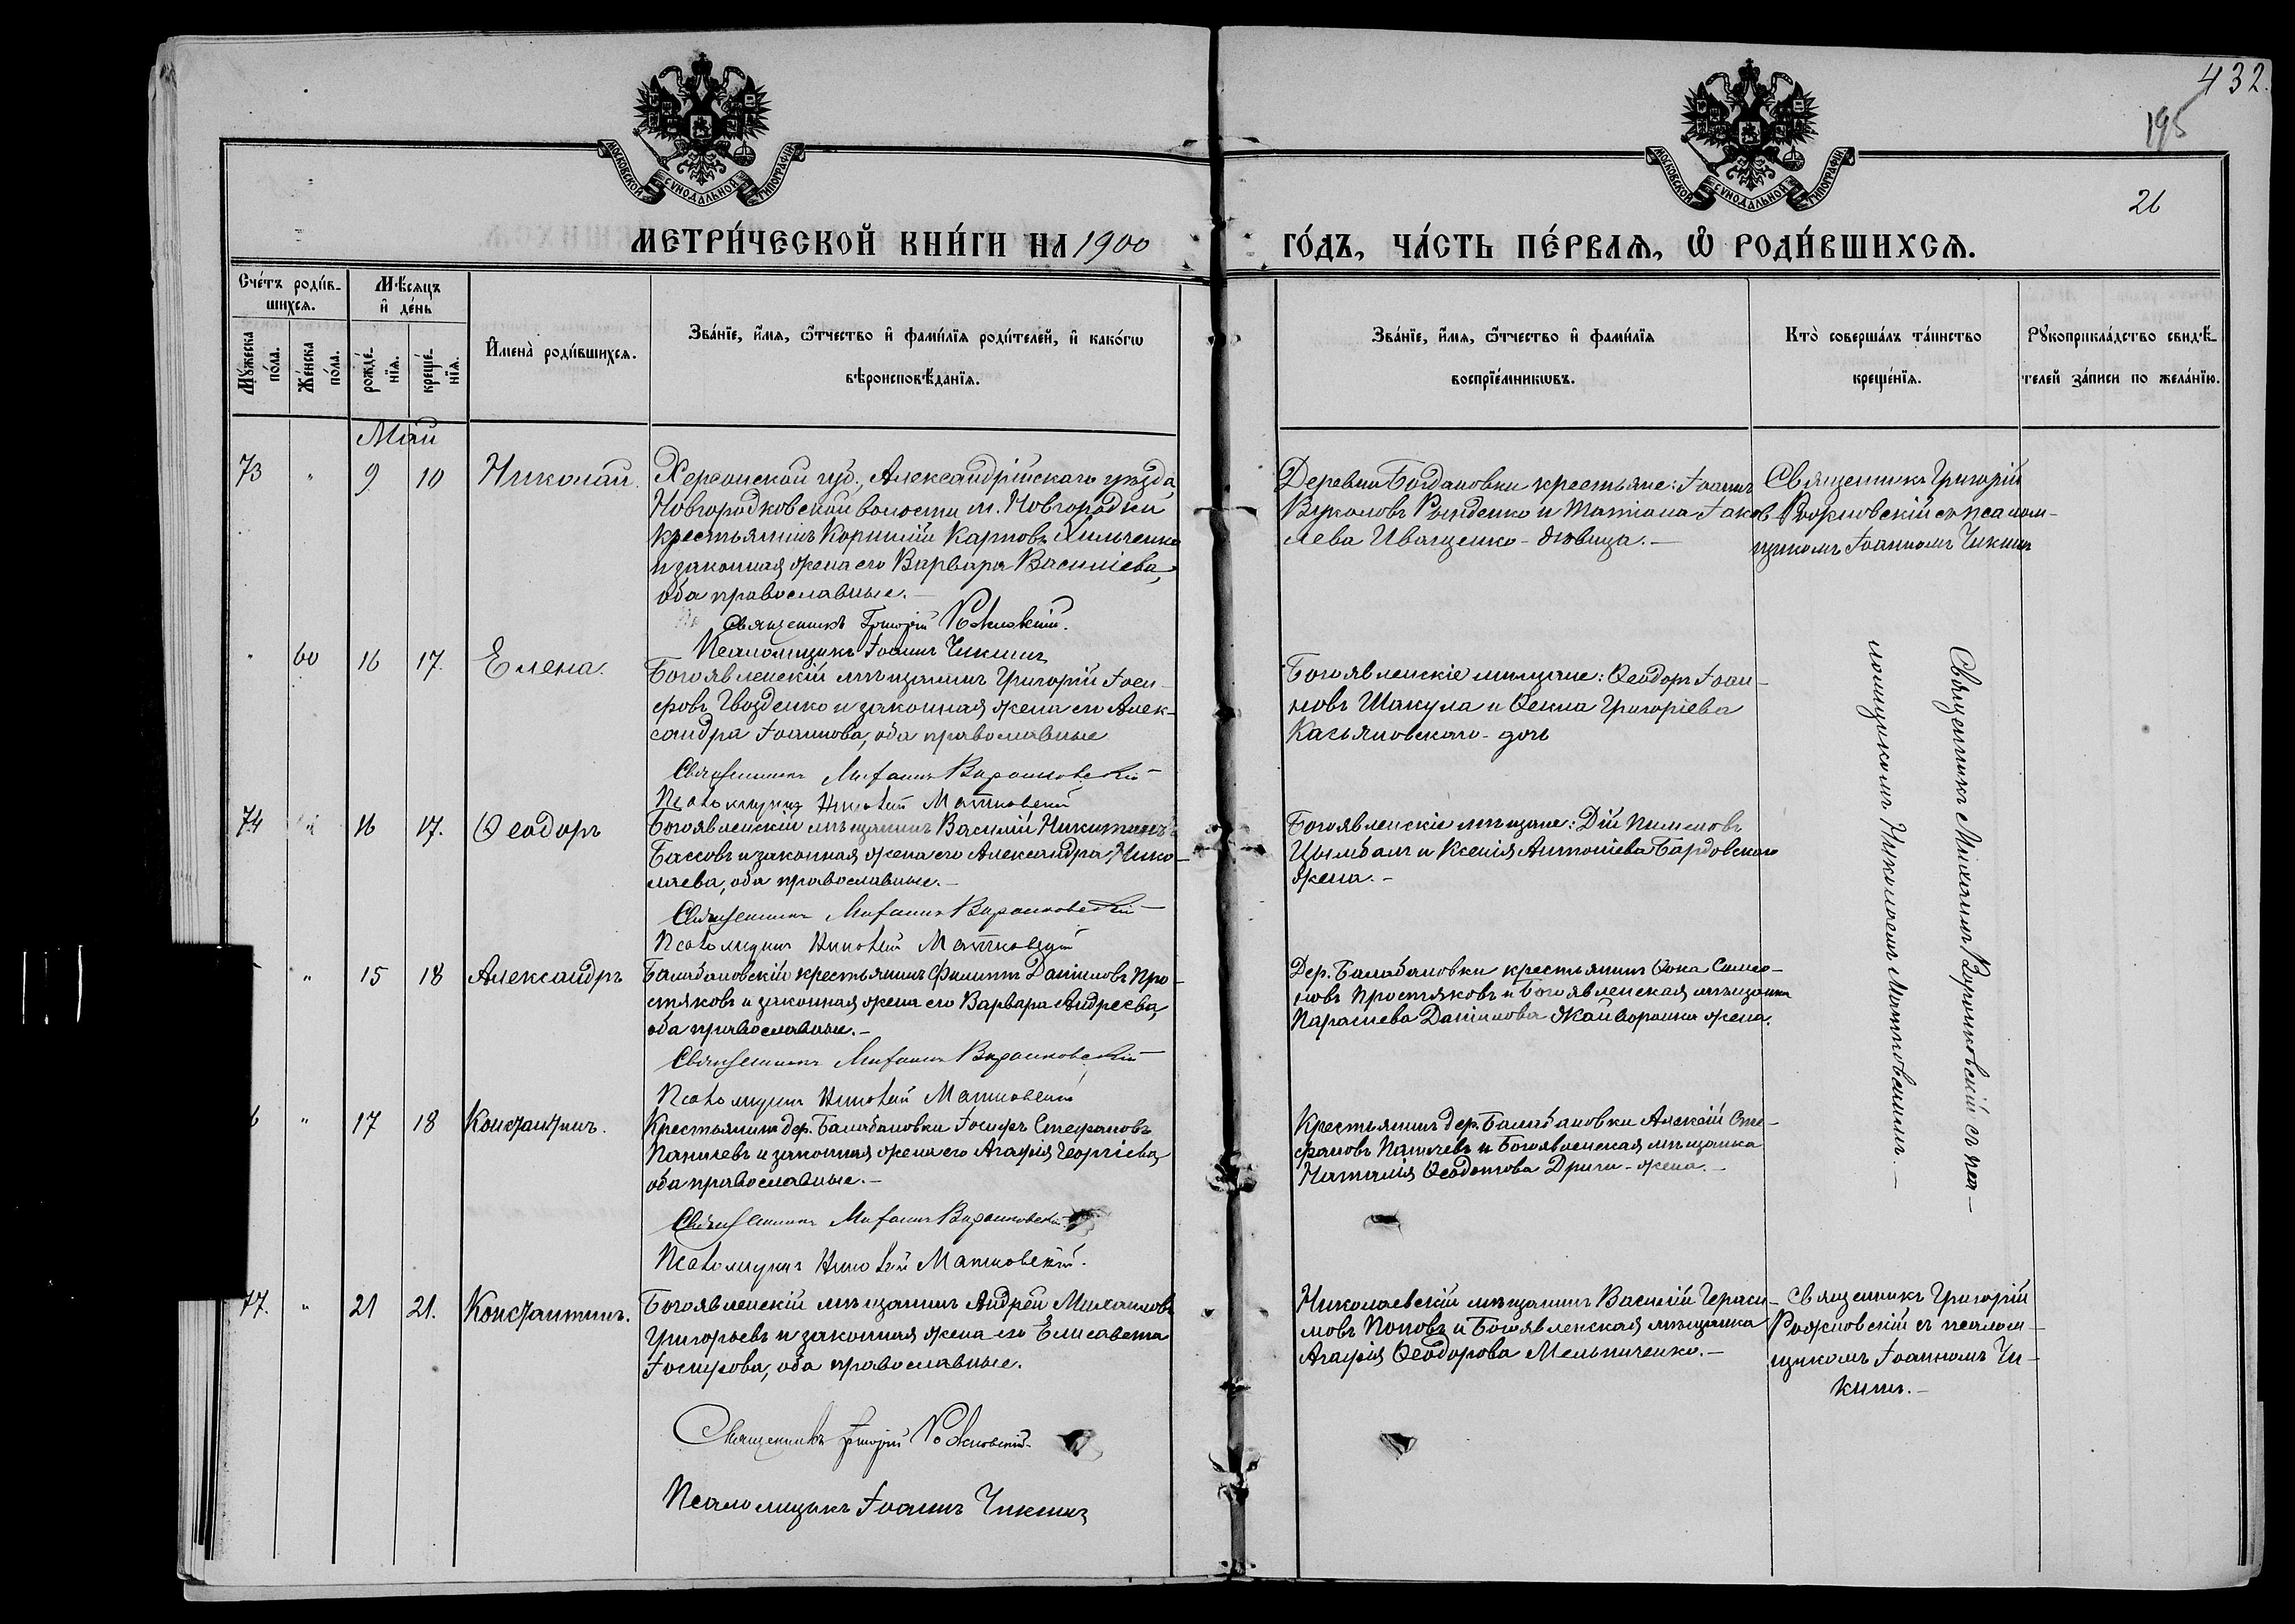 432.
195
26
МОСКОВСКОЙ СУНОДАЛЬНОЙ ТИПОГРАФІИ
МОСКОВСКОЙ СУНОДАЛЬНОЙ ТИПОГРАФІИ
МЕТРИ́ЧЕСКОЙ КНИ́ГИ НА 1900
ГО́ДЪ, ЧА́СТЬ ПЕ́РВАЯ, Ѡ҆ РОДИ́ВШИХСЯ.
Сче́тъ роди́в-
шихся.
Му́жеска
по́ла.
Же́нска
по́ла.
Мѣ́сяцъ
и҆ де́нь
рожде́-
нїя.
креще́-
нїя.
И҆мена̀ роди́вшихся.
Зва́нїе, и҆́мя, ѻ҆́тчество и҆ фами́лїя роди́телей, и҆ како́гѡ
вѣроисповѣ́данїя.
Зва́нїе, и҆́мя, ѻ҆́тчество и҆ фами́лїя
воспрїе́мникѡвъ.
Кто̀ соверша́лъ та́инство
креще́нїя.
Рꙋкоприкла́дство свидѣ́-
телей за́писи по жела́нїю.
Май
73 " 9 10 Николай
Херсонской губ., Александрійскаго уѣзда,
Новгородковской волости м. Новгородки
крестьянинъ Корнилій Карповъ Хильченко
и законная жена его Варвара Василіева,
оба православные.—
Священникъ Григорій Рожновскій.
Псаломщикъ Іоаннъ Чикинъ
Деревни Богдановки крестьяне: Іоаннъ
Вуколовъ Рой­денко и Татіана Іаков-
лева Иващенко - дѣвица.—
Священникъ Григорій
Рожновскій съ псалом-
щикомъ Іоанномъ Чикинъ
" 60 16 17. Елена.
Богоявленскій мѣщанинъ Григорій Іоси-
фовъ Гвозденко и законная жена его Алек-
сандра Іоаннова, оба православные
Священникъ Михаилъ Воронковскій
Псаломщикъ Николай Матковскій
Богоявленскіе мѣщане: Ѳеодоръ Іоан-
новъ Шакула и Ѳекла Григоріева
Касьяновскаго - дочь
Священникъ Михаилъ Воронковскій съ пса-
ломщикомъ Николаемъ Матковскимъ.—
74 " 16 17. Ѳеодоръ
Богоявленскій мѣщанинъ Василій Никитинъ
Бассовъ и законная жена его Александра Нико-
лаева, оба православные.—
Священникъ Михаилъ Воронковскій
Псаломщикъ Николай Матковскій
Богоявленскіе мѣщане: Дій Пименовъ
Цымбалъ и Ксенія Антоніева Бардовскаго
жена.-
" 15 18 Александръ
Балабановскій крестьянинъ Филиппъ Даніиловъ Про-
стяковъ и законная жена его Варвара Андреева,
оба православные.—
Священникъ Михаилъ Воронковскій
Псаломщикъ Николай Матковскій
Дер. Балабановки крестьянинъ Ѳома Симео-
новъ Простяковъ и Богоявленская мѣщанка
Параскева Даніилова Жайворонка жена.
6 " 17 18 Константинъ.
Крестьянинъ дер. Балабановки Іосифъ Стефановъ
Паничевъ и законная жена его Агафія Георгіева,
оба православные.—
Священникъ Михаилъ Воронковскій
Псаломщикъ Николай Матковскій.
Крестьянинъ дер. Балабановки Алексій Сте-
фановъ Паничевъ и Богоявленская мѣщанка
Наталія Ѳеодотова Дриги - жена.—
77. " 21 21. Константинъ.
Богоявленскій мѣщанинъ Андрей Михаиловъ
Григорьевъ и законная жена его Елисавета
Іосифова, оба православные.
Священникъ Григорій Рожновскій
Псаломщикъ Іоаннъ Чикинъ
Николаевскій мѣщанинъ Василій Гераси-
мовъ Поповъ и Богоявленская мѣщанка
Агафія Ѳеодорова Мельниченко.—
Священникъ Григорій
Рожновскій съ псалом-
щикомъ Іоанномъ Чи-
кинъ.—